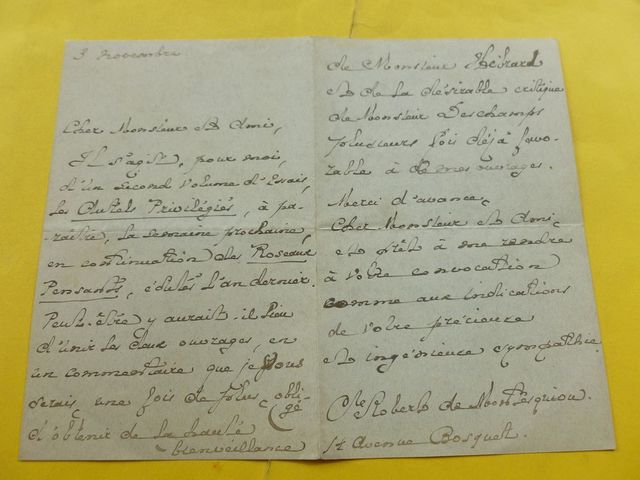 3 novembre
Cher Monsieur et Ami,
Il s'agit, pour moi,
d'un second volume d'Essais,
Les Autels Privilégiés, à pa-
raître, la semaine prochaine,
en continuation des Roseaux
Pensants, édités l'an dernier.
Peut-être y aurait-il lieu
d'unir les deux ouvrages, en
un commentaire que je vous
serais, une fois de plus, obli-
gé
d'obtenir de la haute
bienveillance
de Monsieur Hébrard
et de la désirable critique
de Monsieur Deschamps
plusieurs fois déjà favo-
rable à de mes ouvrages.
Merci d'avance,
Cher Monsieur et Ami
et prêt à me rendre
à votre convocation
comme aux indications
de votre précieuse
et ingénieuse sympathie.
Cte Robert de Montesquiou.
14 Avenue Bosquet.